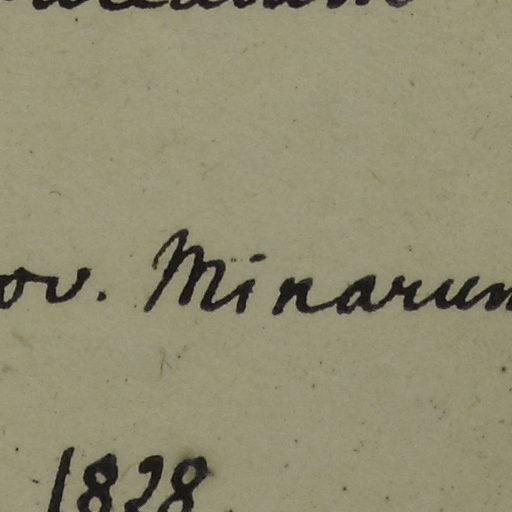 ov. Minarum
1828